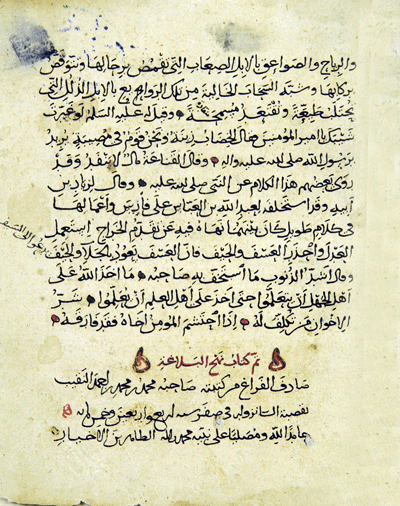 والرياح والصواعق بالابل الصعاب التي تقمص برحالها وتتوقص
بركبانها وشبه السحاب الخالية من تلك الروايع بالابل الذلل التي
تحتلب طيعة وتقتعد مسمحة وقيل له عليه السلم لو غيرت
شيبك يا امير المومنين فقال الخضاب زينة ونحن قوم في مصيبة يريد
برسول الله صلى الله عليه واله وقال القناعة مال لا ينفد وقد
روى بعضهم هذا الكلام عن النبي صلى الله عليه وقال لزياد بن
ابيه وقد استخلفه لعبد الله بن العباس على فارس واعمالها
في كلام طويل كان بينهما نهاه فيه عن تقديم الخراج استعمل
العدل واحذر العسف والحيف فان العسف يعود بالجلاء والحيف
يدعو الى السيف
وقال اشد الذنوب ما استخف به صاحبه ما اخذ الله على
اهل الجهل ان يتعلموا حتى اخذ على اهل العلم ان يعلموا شر
الاخوان من تكلف له اذا احتشم المومن اخاه فقد فارقه
تم كتاب نهج البلاغة
صادف الفراغ من كتبته صاحبه محمد بن محمد بن احمد النقيب
بقصبة السانزوار في صفر سنة اربع واربعين وخمس مايه
حامدا لله ومصليا على نبيه محمد واله الطاهرين الاخيار